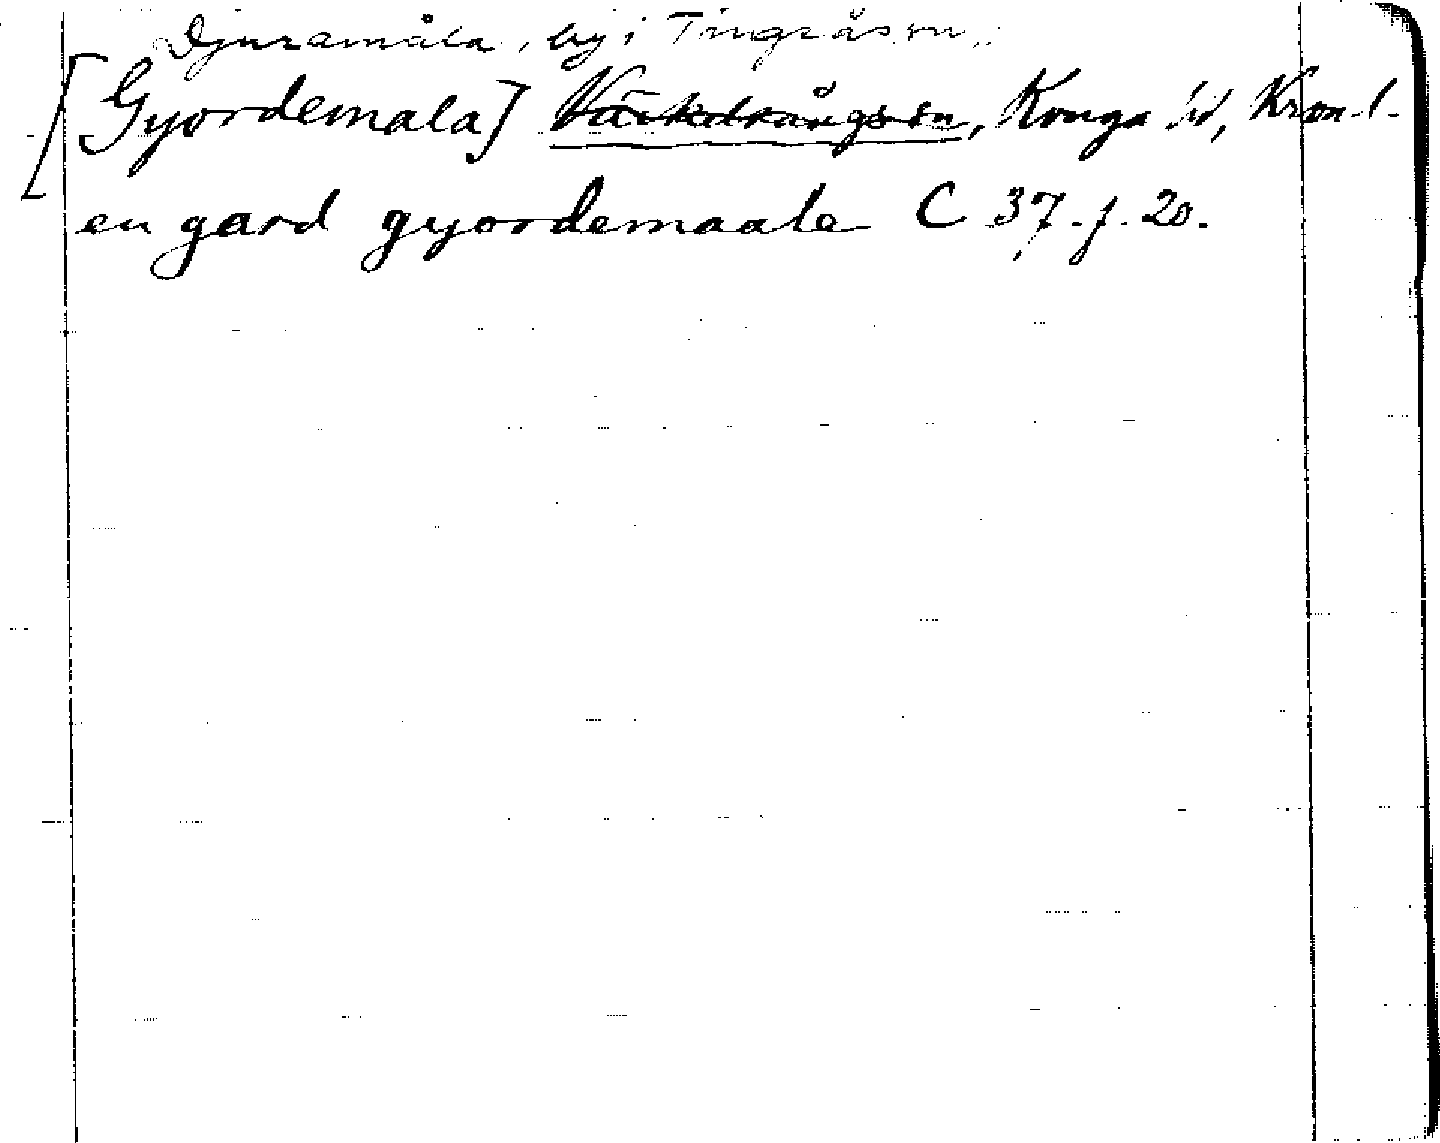 Djuramåla, by i Tingsås sn,
[Gyordemala] Väckelsångs sn, Konga hd, Kron. l.
en gard gyordemaale C 37. f. 20.